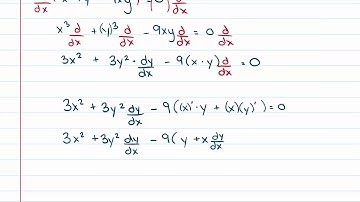 x³ d/dx + (y)³ d/dx - 9xy d/dx = 0 d/dx
3x² + 3y² · dy/dx - 9(x · y) d/dx = 0
3x² + 3y² dy/dx - 9((x)' · y + (x)(y)') = 0
3x² + 3y² dy/dx - 9( y + x dy/dx